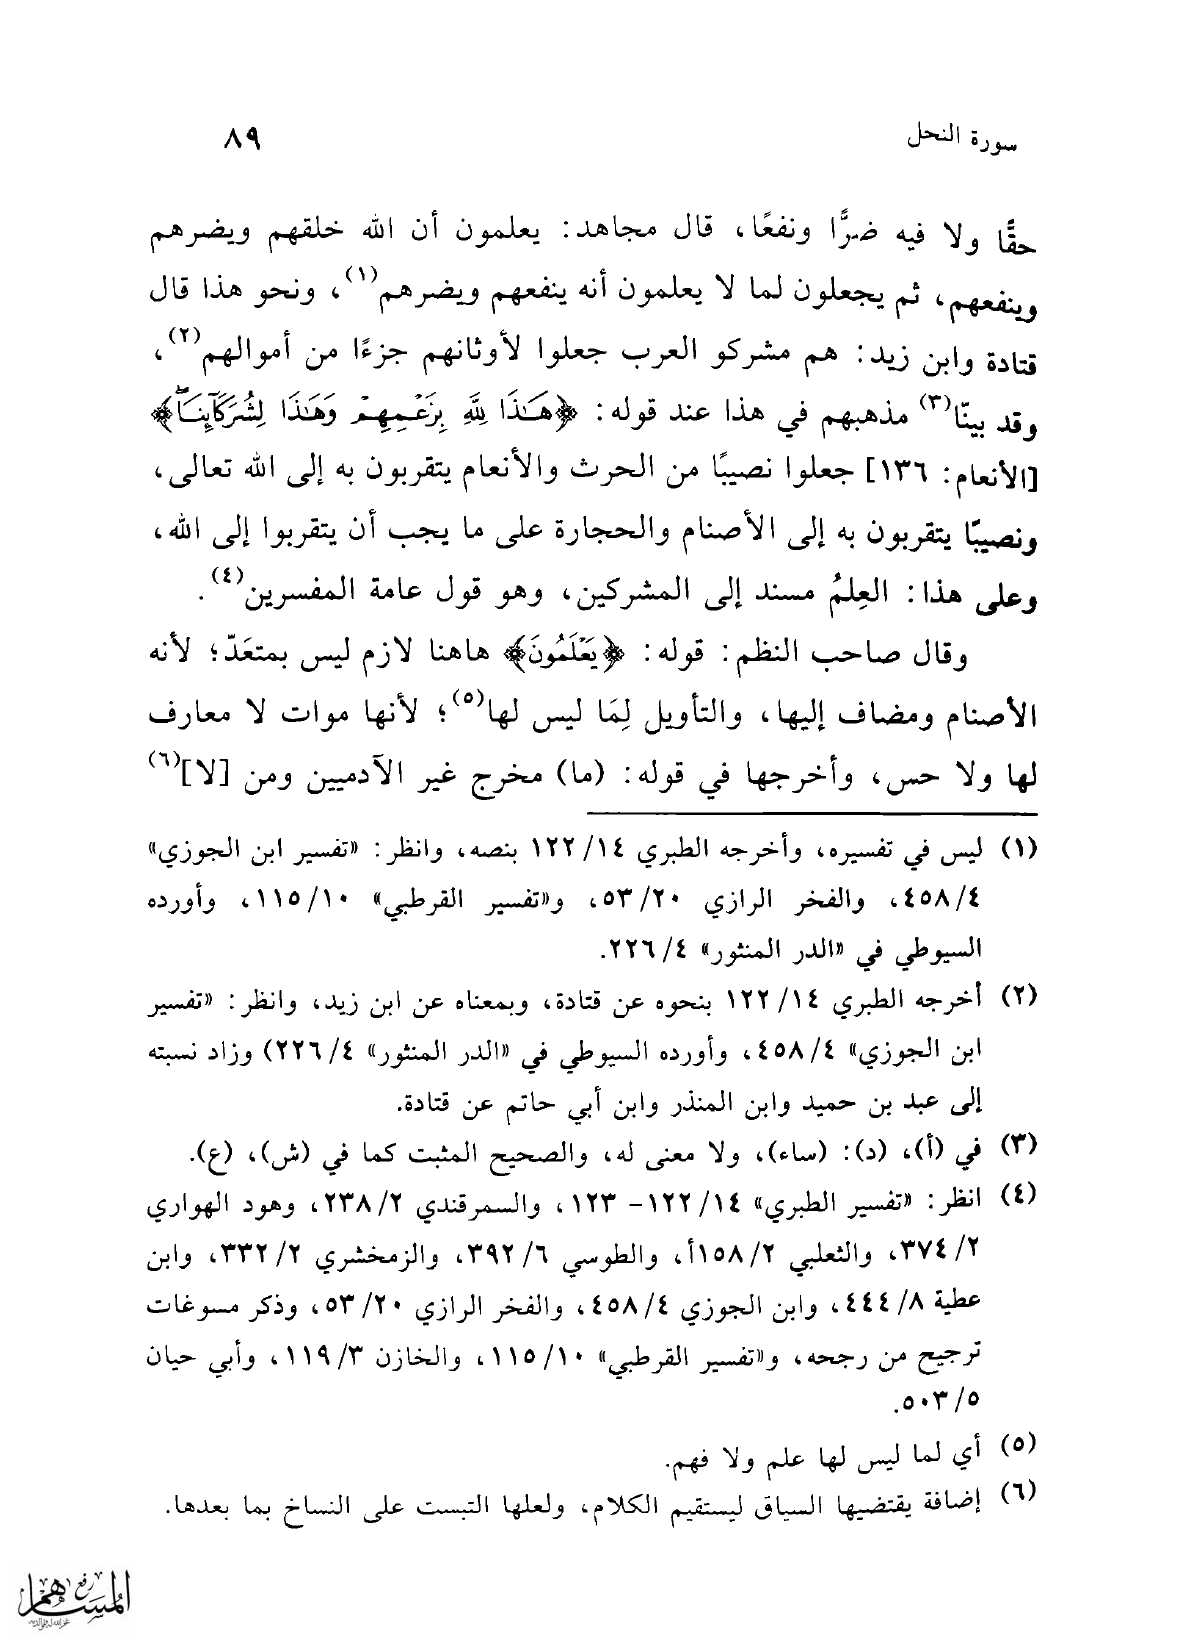 سورة النحل
٨٩
حقًّا ولا فيه ضرًّا ونفعًا، قال مجاهد: يعلمون أن الله خلقهم ويضرهم
وينفعهم، ثم يجعلون لما لا يعلمون أنه ينفعهم ويضرهم(١)، ونحو هذا قال
قتادة وابن زيد: هم مشركو العرب جعلوا لأوثانهم جزءًا من أموالهم(٢)،
وقد بينّا(٣) مذهبهم في هذا عند قوله: ﴿هَٰذَا لِلَّهِ بِزَعْمِهِمْ وَهَٰذَا لِشُرَكَآئِنَاۖ﴾
[الأنعام: ١٣٦] جعلوا نصيبًا من الحرث والأنعام يتقربون به إلى الله تعالى،
ونصيبًا يتقربون به إلى الأصنام والحجارة على ما يجب أن يتقربوا إلى الله،
وعلى هذا: العِلمُ مسند إلى المشركين، وهو قول عامة المفسرين(٤).
وقال صاحب النظم: قوله: ﴿يَعْلَمُونَ﴾ هاهنا لازم ليس بمتعَدّ؛ لأنه
الأصنام ومضاف إليها، والتأويل لِمَا ليس لها(٥)؛ لأنها موات لا معارف
لها ولا حس، وأخرجها في قوله: (ما) مخرج غير الآدميين ومن [لا](٦)
(١) ليس في تفسيره، وأخرجه الطبري ١٤/ ١٢٢ بنصه، وانظر: «تفسير ابن الجوزي»
٤/ ٤٥٨، والفخر الرازي ٢٠/ ٥٣، و«تفسير القرطبي» ١٠/ ١١٥، وأورده
السيوطي في «الدر المنثور» ٤/ ٢٢٦.
(٢) أخرجه الطبري ١٤/ ١٢٢ بنحوه عن قتادة، وبمعناه عن ابن زيد، وانظر: «تفسير
ابن الجوزي» ٤/ ٤٥٨، وأورده السيوطي في «الدر المنثور» ٤/ ٢٢٦) وزاد نسبته
إلى عبد بن حميد وابن المنذر وابن أبي حاتم عن قتادة.
(٣) في (أ)، (د): (ساء)، ولا معنى له، والصحيح المثبت كما في (ش)، (ع).
(٤) انظر: «تفسير الطبري» ١٤/ ١٢٢- ١٢٣، والسمرقندي ٢/ ٢٣٨، وهود الهواري
٢/ ٣٧٤، والثعلبي ٢/ ١٥٨أ، والطوسي ٦/ ٣٩٢، والزمخشري ٢/ ٣٣٢، وابن
عطية ٨/ ٤٤٤، وابن الجوزي ٤/ ٤٥٨، والفخر الرازي ٢٠/ ٥٣، وذكر مسوغات
ترجيح من رجحه، و«تفسير القرطبي» ١٠/ ١١٥، والخازن ٣/ ١١٩، وأبي حيان
٥/ ٥٠٣.
(٥) أي لما ليس لها علم ولا فهم.
(٦) إضافة يقتضيها السياق ليستقيم الكلام، ولعلها التبست على النساخ بما بعدها.